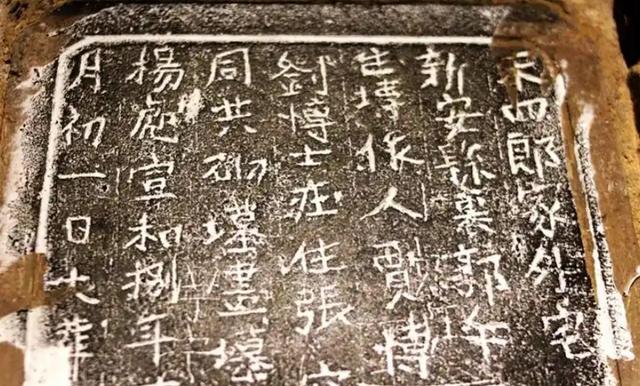 宋四郎家外宅
新安縣裏郭午
住塼作人賈博
劉博士莊住張
同共砌墓畫墓
楊彪宣和捌年
月初一日大葬